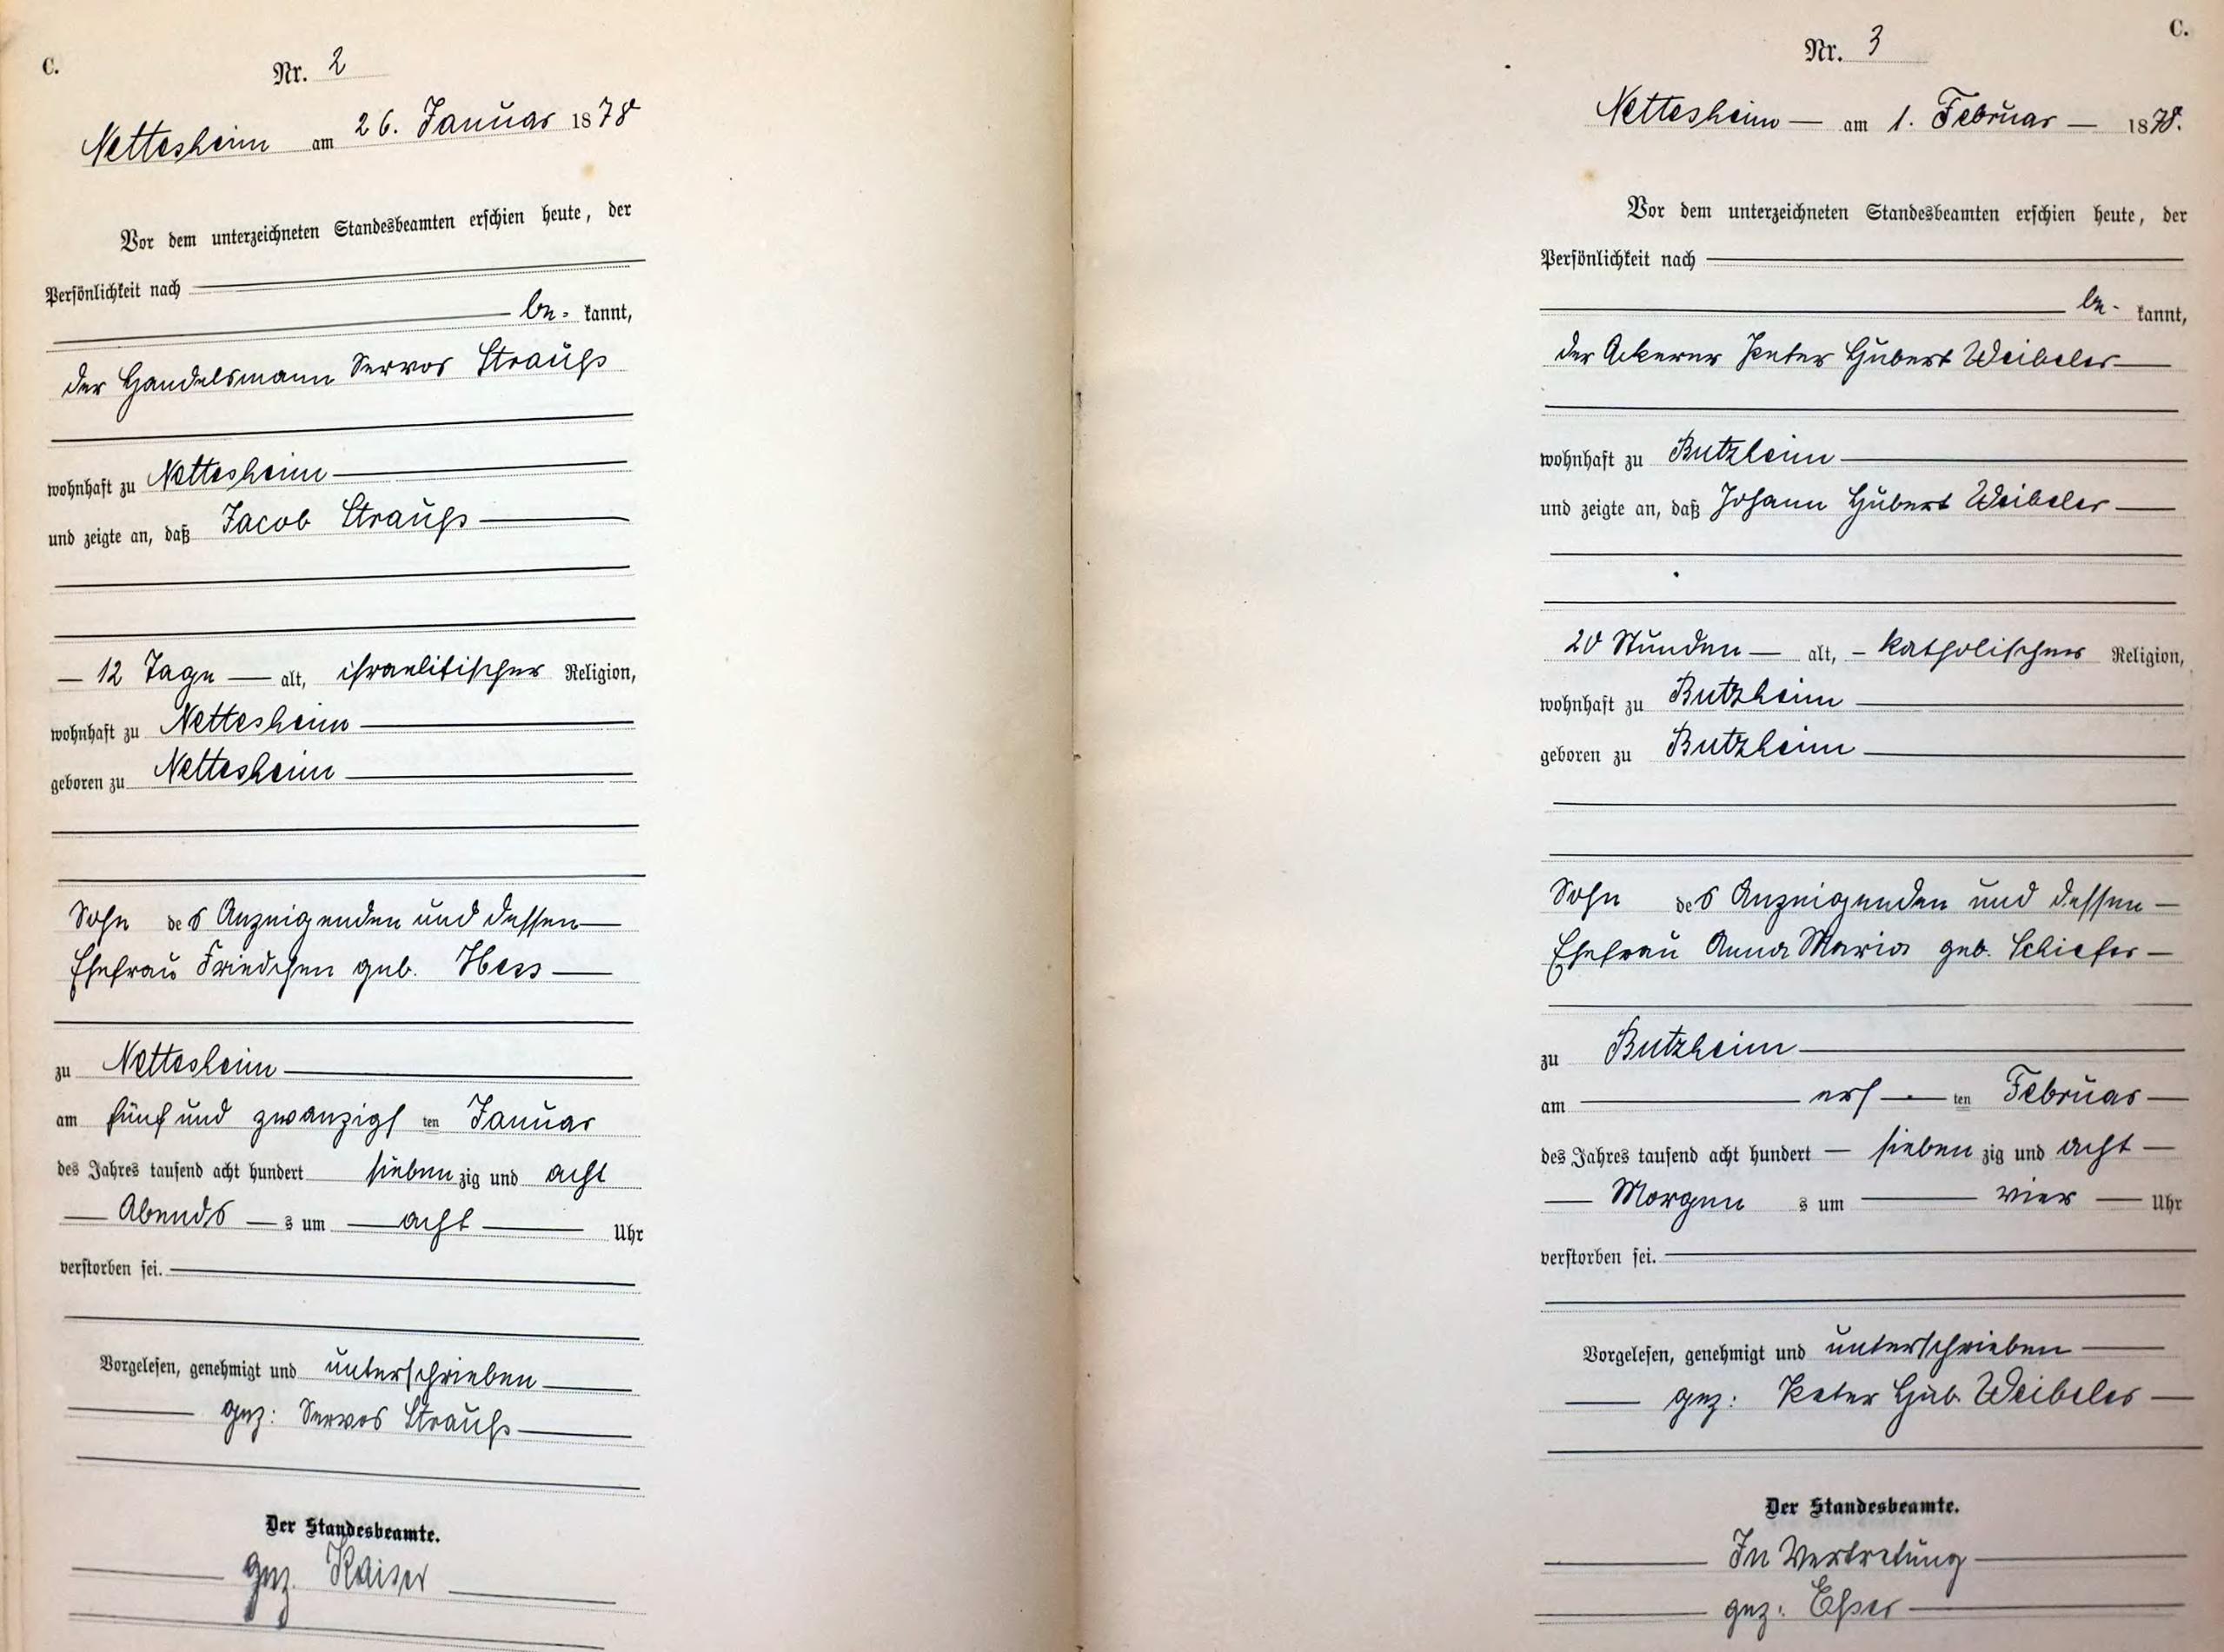 C.
Nr. 2
Nettesheim am 26. Januar 1878
Vor dem unterzeichneten Standesbeamten erschien heute, der
Persönlichkeit nach
be- kannt,
der Handelsmann Servos Strauss
wohnhaft zu Nettesheim
und zeigte an, daß Jacob Strauss
12 Tage alt, israelitischer Religion,
wohnhaft zu Nettesheim
geboren zu Nettesheim
Sohn des Anzeigenden und dessen
Ehefrau Friedchen geb. Hess
zu Nettesheim
am fünf und zwanzigsten Januar
des Jahres tausend acht hundert siebenzig und acht
Abends s um acht Uhr
verstorben sei.
Vorgelesen, genehmigt und unterschrieben
gez: Servos Strauss
Der Standesbeamte.
gez. Kaiser
C.
Nr. 3
Nettesheim am 1. Februar 1878.
Vor dem unterzeichneten Standesbeamten erschien heute, der
Persönlichkeit nach
be- kannt,
der Ackerer Peter Hubert Weibeler
wohnhaft zu Butzheim
und zeigte an, daß Johann Hubert Weibeler
20 Stunden alt, katholischer Religion,
wohnhaft zu Butzheim
geboren zu Butzheim
Sohn des Anzeigenden und dessen
Ehefrau Anna Maria geb. Schiefer
zu Butzheim
am ersten Februar
des Jahres tausend acht hundert siebenzig und acht
Morgens um vier Uhr
verstorben sei.
Vorgelesen, genehmigt und unterschrieben
gez: Peter Hub. Weibeler
Der Standesbeamte.
In Vertretung
gez: Esser